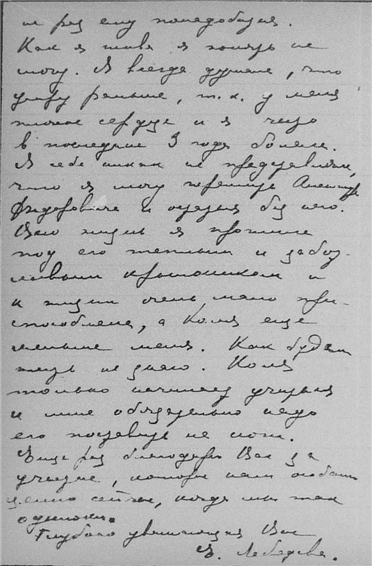 и раз ему понадобился.
Как я живя я понять не
могу. Я всегда думала, что
умру раньше, т.к. у меня
плохое сердце и я часто
в последние 3 года болела.
Я себе никак не представляла,
что я могу пережить Александра
Федоровича и остаться без него.
Всю жизнь я прожила
под его теплым и забот-
ливым крылышком и
к жизни очень мало при-
способлена, а Коля еще
меньше меня. Как будем
жить не знаю. Коля
только начинает учиться
и мне обязательно надо
его поставить на ноги.
Еще раз благодарю Вас за
участие, которое нам особенно
ценно сейчас, когда мы так
одиноки.
Глубоко уважающая Вас
Лебедева.